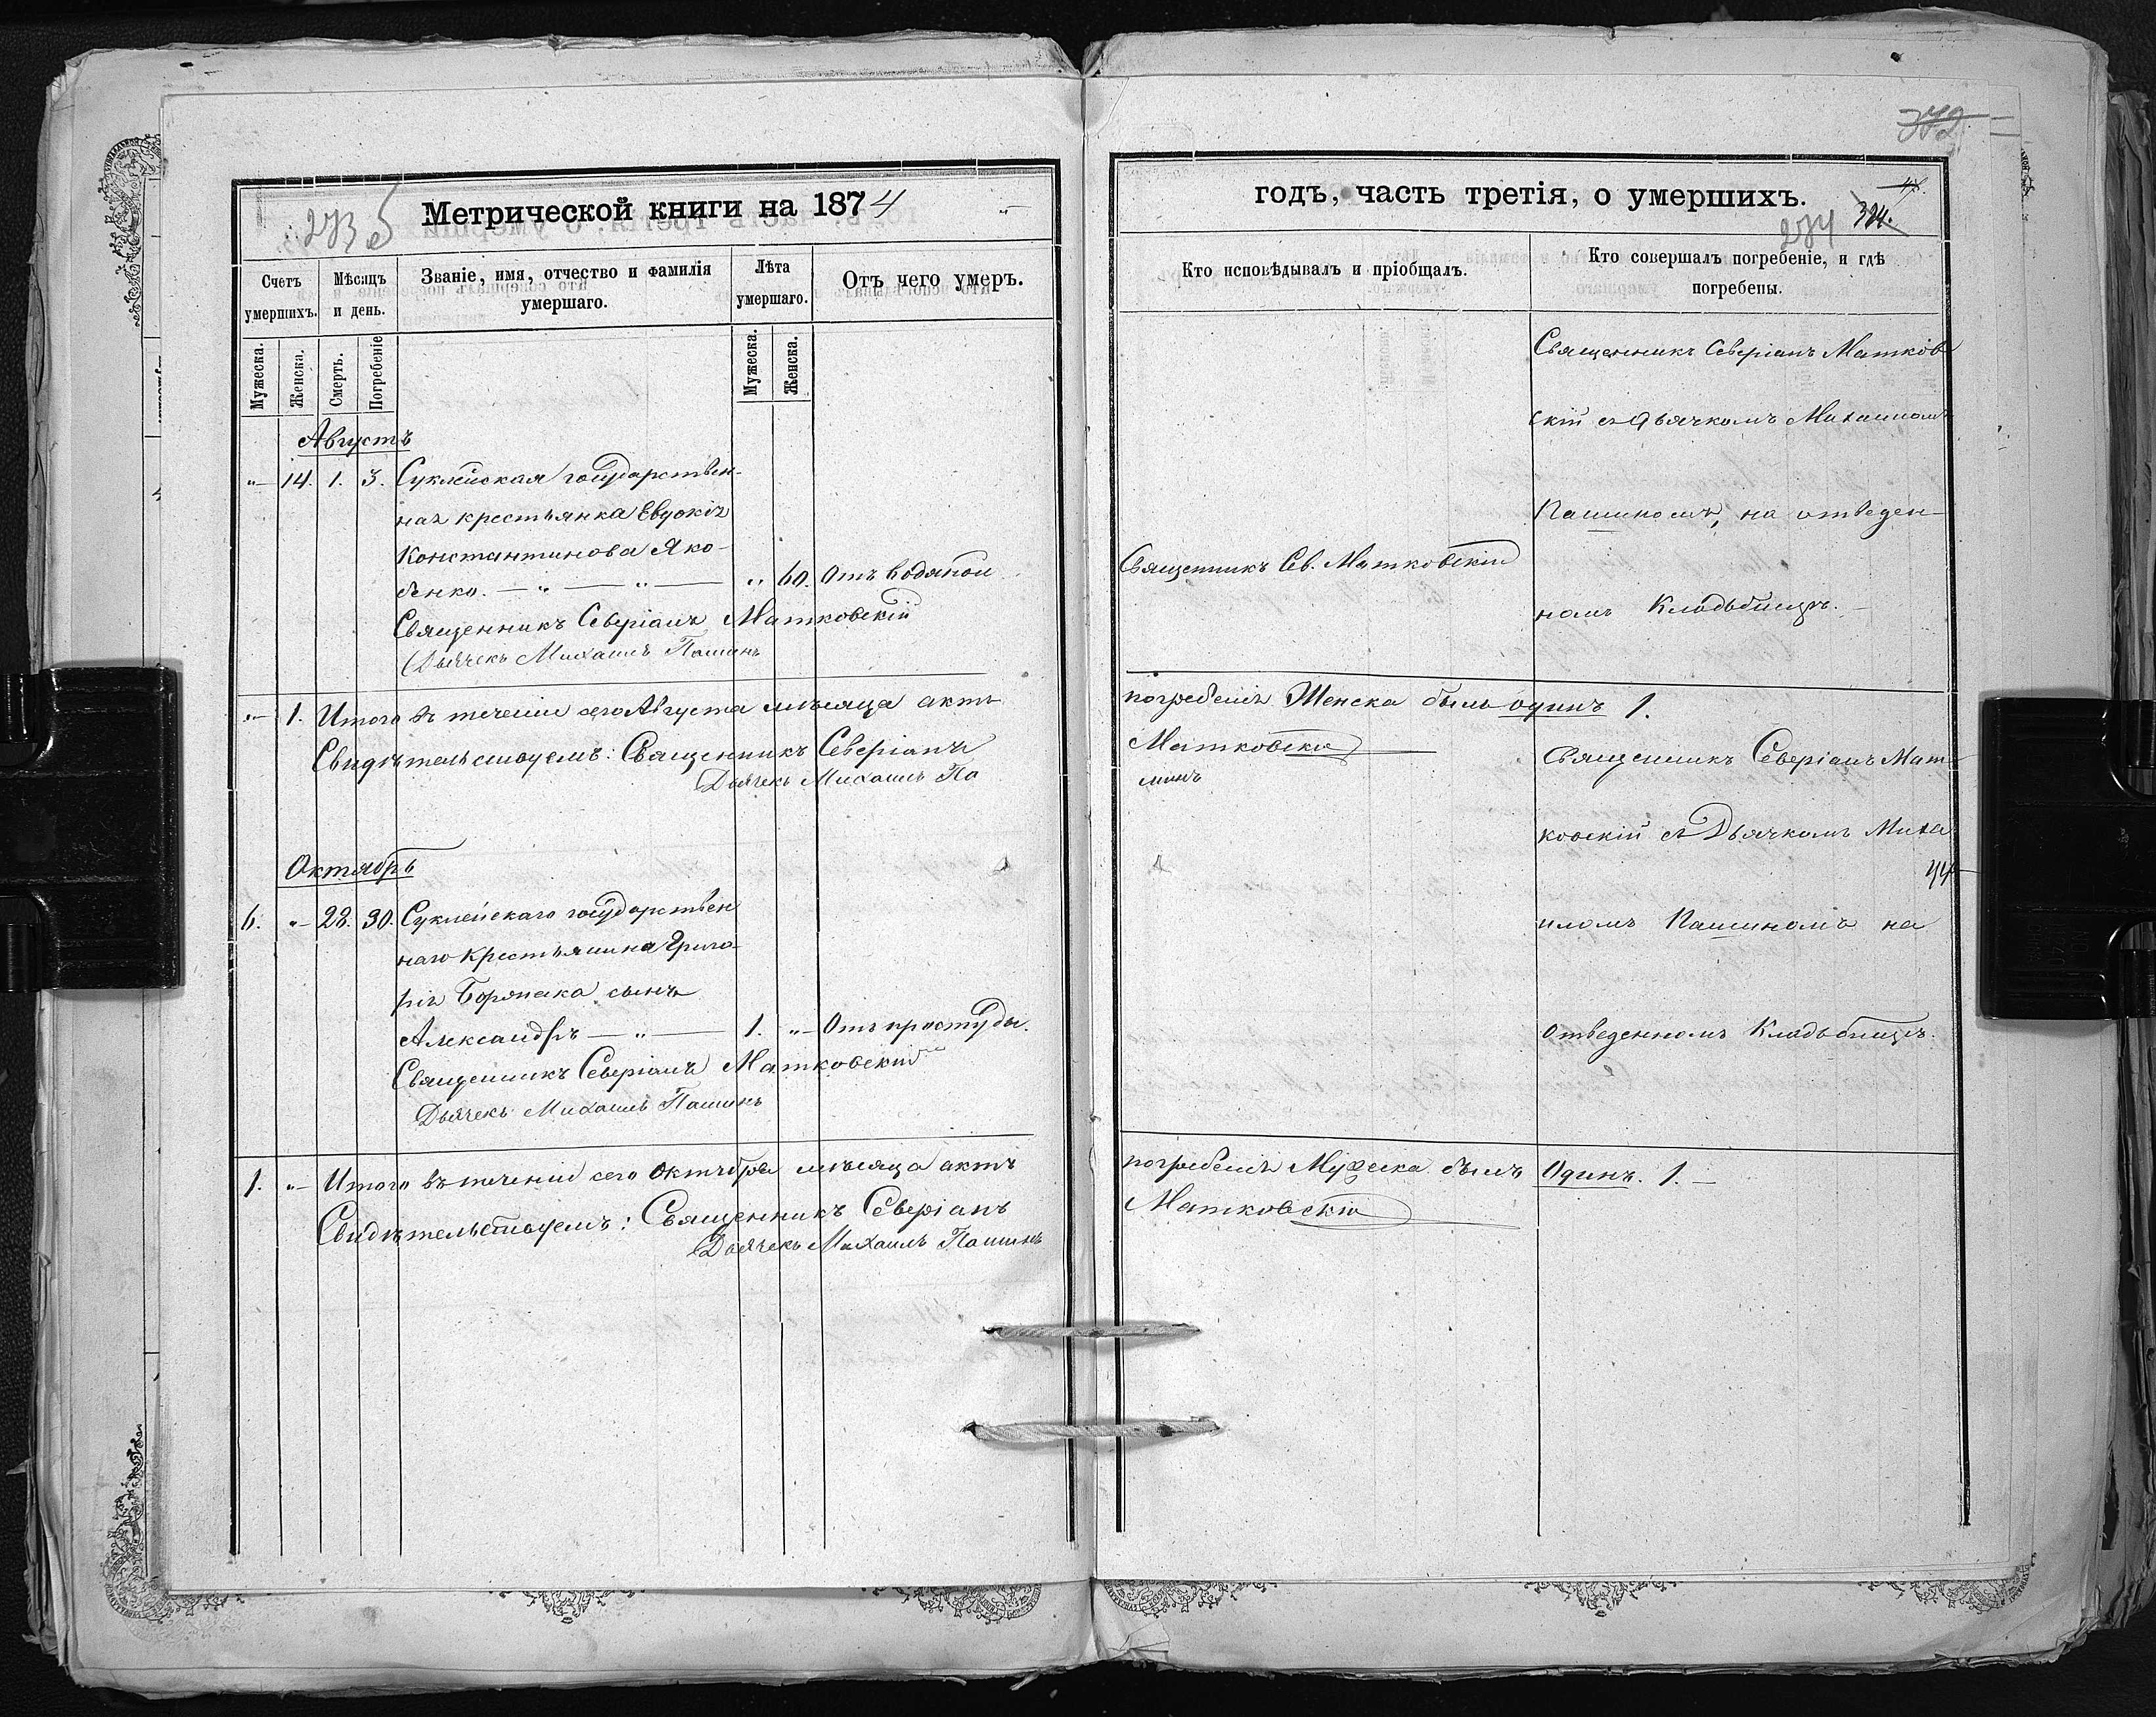 273 б
Метрической книги на 1874
Счетъ умершихъ.
Мѣсяцъ и день.
Званіе, имя, отчество и фамилія умершаго.
Лѣта умершаго.
Отъ чего умеръ.
Мужеска.
Женска.
Смерть.
Погребеніе
Мужеска.
Женска.
Августъ
"— 14. 1. 3. Суклейская государствен-
ная крестьянка Евдокія
Константинова Яко-
бенко. — " — " — " 60. Отъ водяной
Священникъ Северіанъ Матковскій
Дьячекъ Михаилъ Пашинъ
"— 1. Итого въ теченіи сего Августа мѣсяца актъ
Свидѣтельствуемъ: Священникъ Северіанъ
Дьячекъ Михаилъ Па
Октябрь
6. "— 28. 30. Суклейскаго государствен
наго крестьянина Григо-
рія сынъ
Александръ — " — 1. "— Отъ простуды.
Священникъ Северіанъ Матковскій
Дьячекъ Михаилъ Пашинъ
1. "— Итого въ теченіи сего Октября мѣсяца актъ
Свидѣтельствуемъ: Священникъ Северіанъ
Дьячекъ Михаилъ Пашинъ
372
годъ, часть третія, о умершихъ.
274 324.
Кто исповѣдывалъ и пріобщалъ.
Кто совершалъ погребеніе, и гдѣ погребены.
Священникъ Северіанъ Матков
скій съ Дьячкомъ Михаиломъ
Пашиномъ, на отведен-
Священникъ Сев. Матковскій
номъ Кладбищѣ. —
погребенія Женска былъ одинъ 1.
Матковскій
шинъ
Священникъ Северіанъ Мат-
ковскій съ Дьячкомъ Миха
иломъ Пашиномъ на
отведенномъ Кладбищѣ.
погребенія Мужеска былъ Одинъ. 1. —
Матковскій